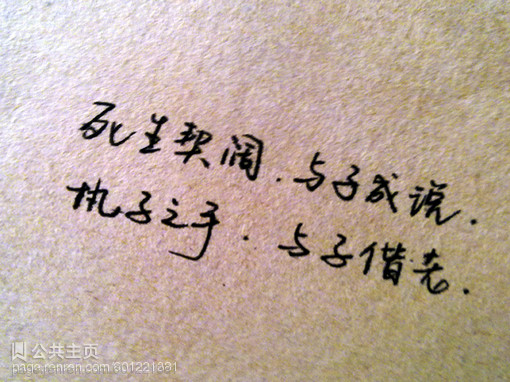 死生契阔.与子成说.
执子之手.与子偕老.
公共主页
page.renren.com/601221391